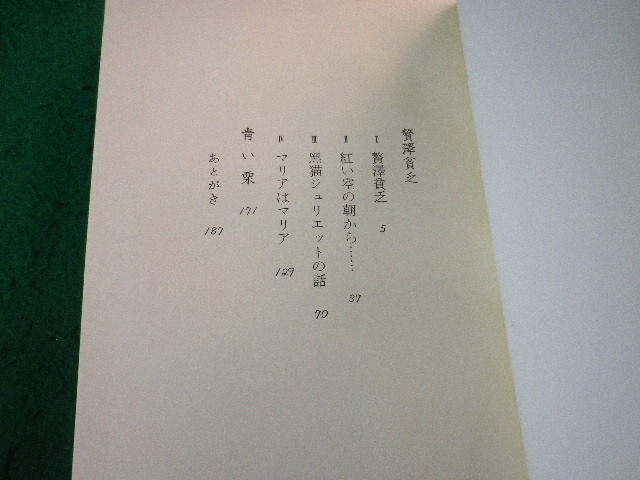 贅澤貧乏
Ⅰ 贅澤貧乏 5
Ⅱ 紅い空の朝から…… 37
Ⅲ 黒猫ジュリエットの話 70
Ⅳ マリアはマリア 129
青い栗 171
あとがき 187